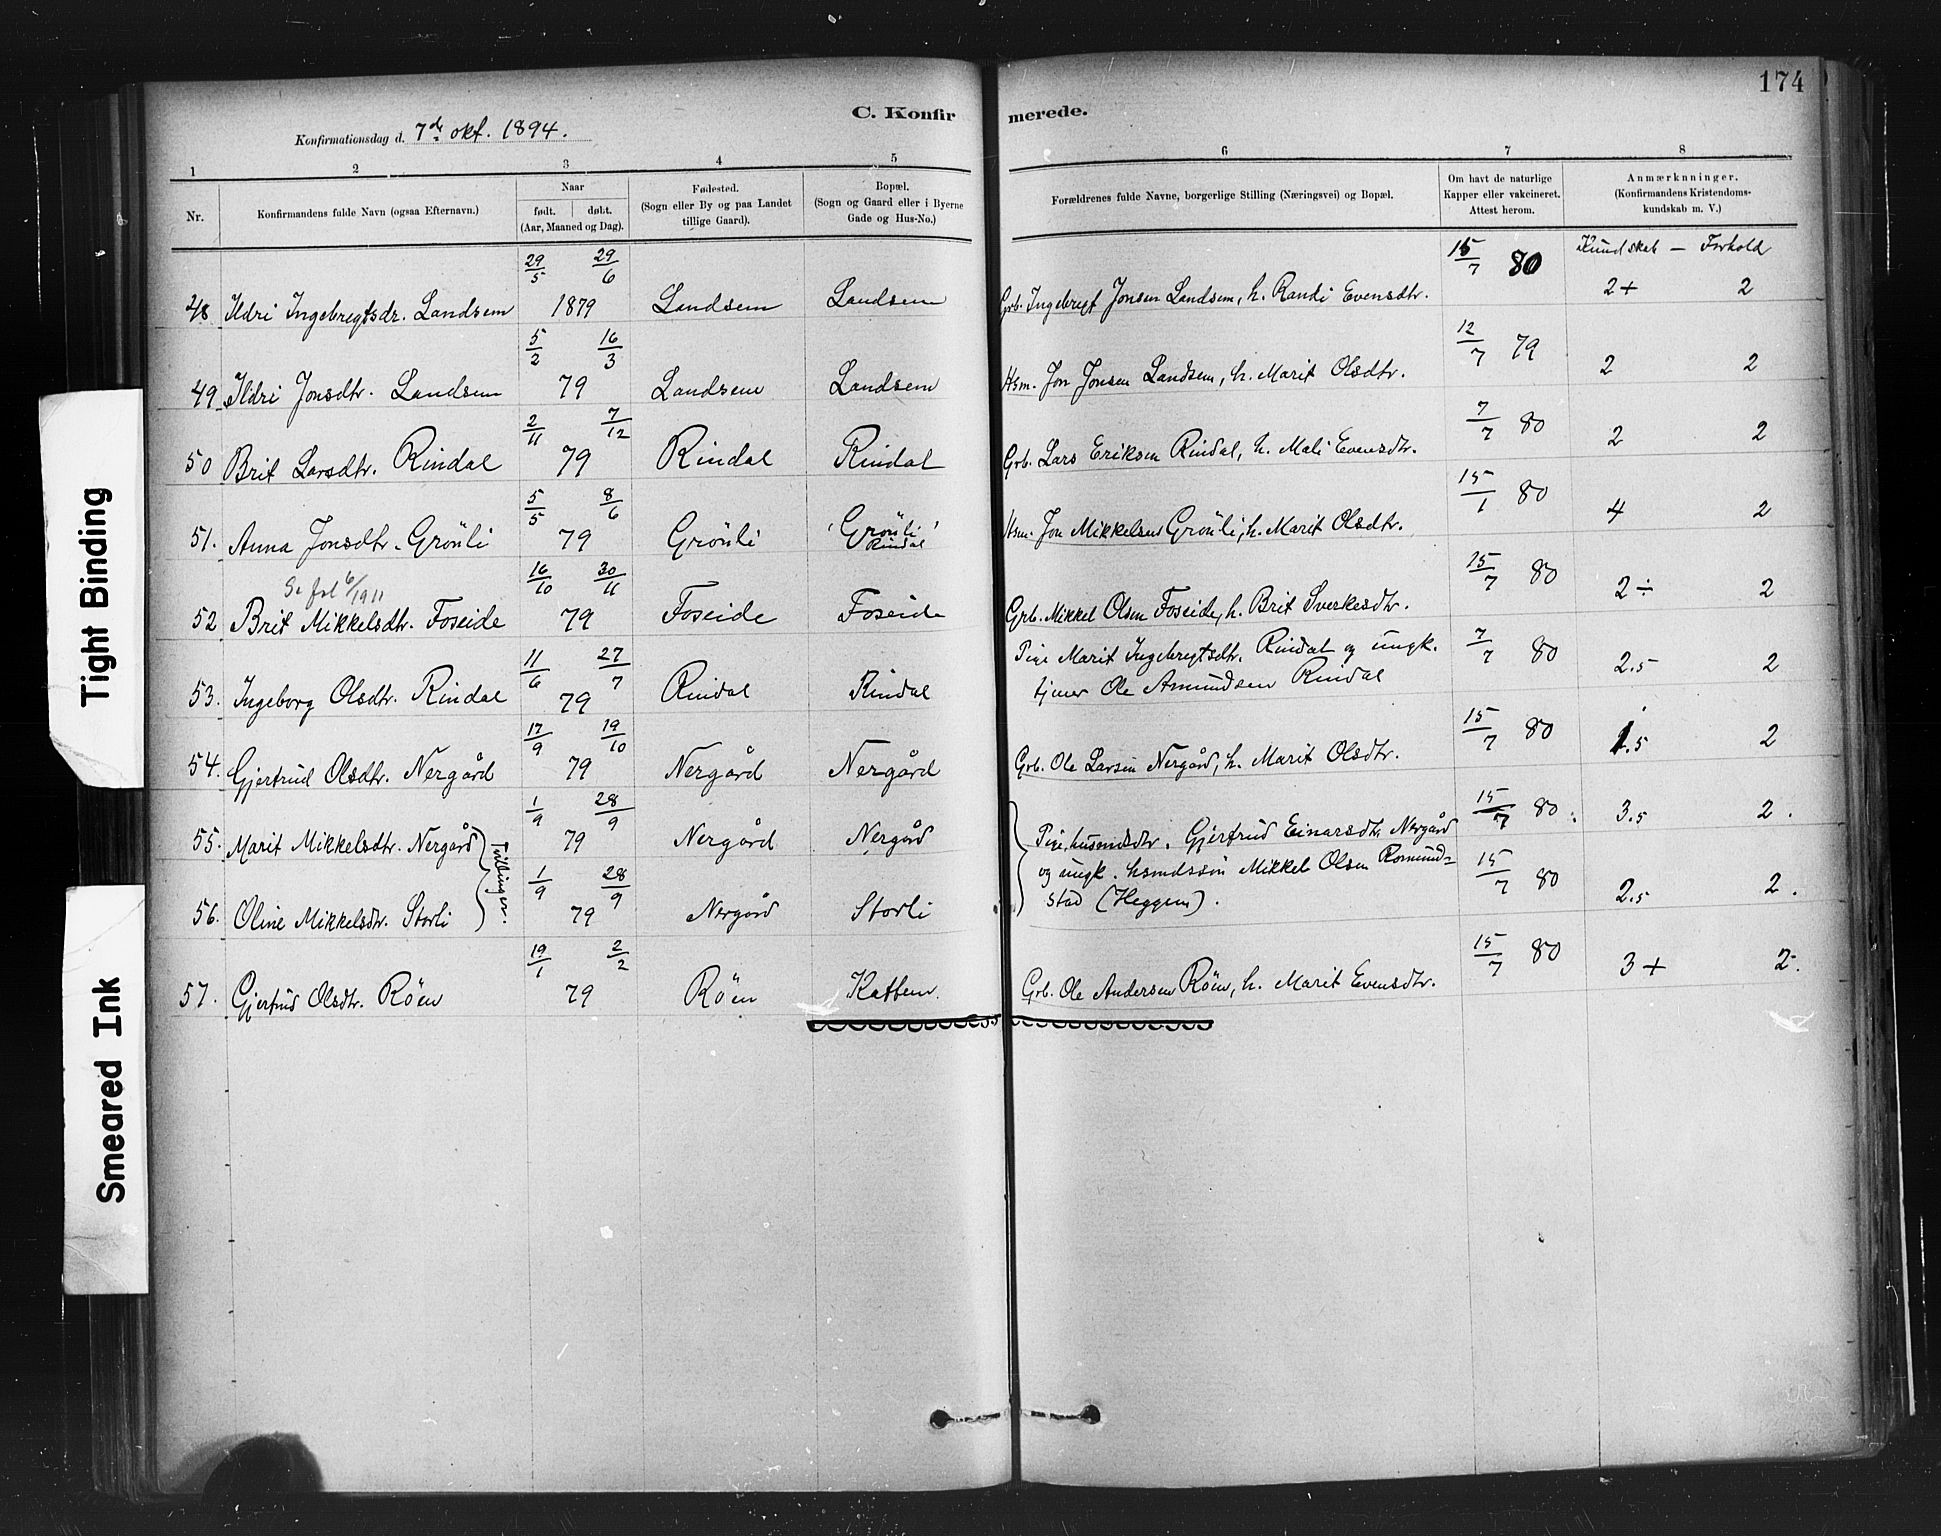 174
C. Konfirmerede.
Konfirmationsdag d. 7de okt. 1894.
1 2 3 4 5 6 7 8
Nr. Konfirmandens fulde Navn (ogsaa Efternavn.) Naar født. døbt. (Aar, Maaned og Dag). Fødested. (Sogn eller By og paa Landet tillige Gaard). Bopæl. (Sogn og Gaard eller i Byerne Gade og Hus-No.) Forældrenes fulde Navne, borgerlige Stilling (Næringsvei) og Bopæl. Om havt de naturlige Kapper eller vakcineret. Attest herom. Anmærkninger. (Konfirmandens Kristendomskundskab m. V.)
Kundskab — Forhold
48 Ildri Ingebregtsdr. Landsem 29/5 29/6 1879 Landsem Landsem Grb. Ingebregt Jonsen Landsem, h. Randi Evensdtr. 15/7 80 2+ 2
49 Ildri Jonsdtr. Landsem 5/2 16/3 79 Landsem Landsem Hsm. Jon Jonsen Landsem, h. Marit Olsdtr. 12/7 79 2 2
50 Brit Larsdtr. Rindal 2/11 7/12 79 Rindal Rindal Grb. Lars Eriksen Rindal, h. Mali Evensdtr. 7/7 80 2 2
51. Anna Jonsdtr. Grönli 5/5 8/6 79 Grönli Grönli Rindal Hsm. Jon Mikkelsen Grönli, h. Marit Olsdtr. 15/1 80 4 2
6/1911
52 Brit Mikkelsdtr. Foseide 16/10 30/11 79 Foseide Foseide Grb. Mikkel Olsen Foseide, h. Brit Sverkesdtr. 15/7 80 2÷ 2
53. Ingeborg Olsdtr. Rindal 11/6 27/7 79 Rindal Rindal Pige Marit Ingebregtsdtr. Rindal og ungk. tjener Ole Amundsen Rindal 7/7 80 2.5 2
54. Gjertrud Olsdtr. Nergård 17/9 19/10 79 Nergård Nergård Grb. Ole Larsen Nergård, h. Marit Olsdtr. 15/7 80 1.5 2
55. Marit Mikkelsdtr. Nergård 1/9 28/9 79 Nergård Nergård Pige, husmdsdtr. Gjertrud Einarsdtr. Nergård 15/7 80. 3.5 2.
Tvillinger.
og ungk. husmdssön Mikkel Olsen Romund=
stad (Heggem).
56. Oline Mikkelsdtr. Storli 1/9 28/9 79 Nergård Storli 15/7 80 2.5 2.
57. Gjertrud Olsdtr. Röen 19/1 2/2 79 Röen Kattem. Grb. Ole Andersen Röen, h. Marit Evensdtr. 15/7 80 3+ 2.
Tight Binding
Smeared Ink